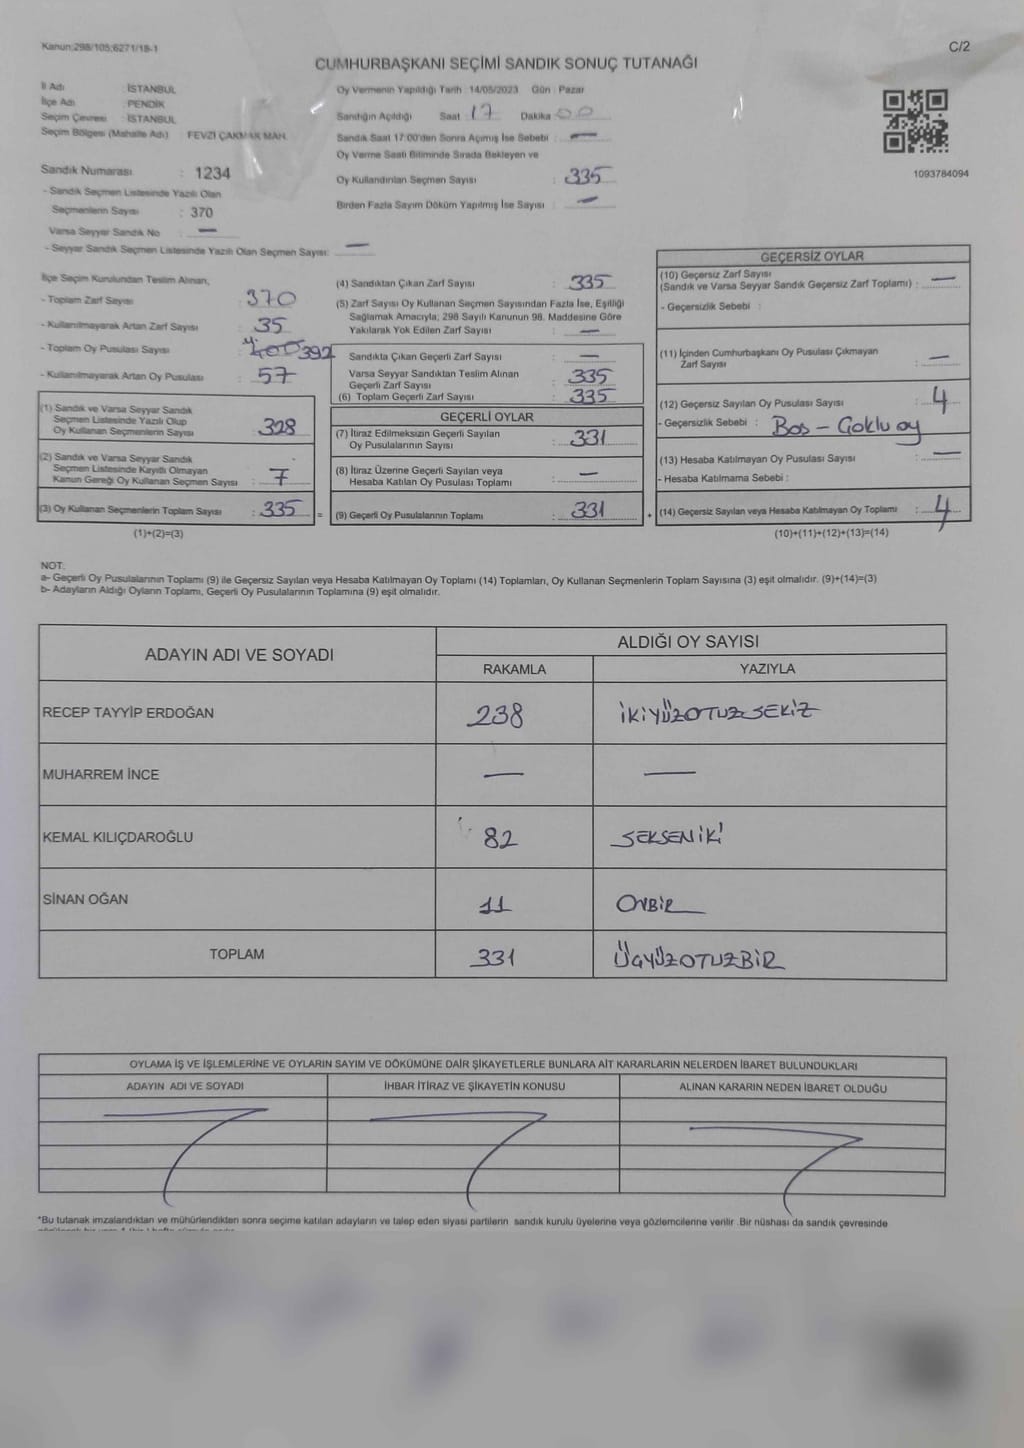 Kanun;298/105;6271/18-1
C/2
CUMHURBAŞKANI SEÇİMİ SANDIK SONUÇ TUTANAĞI
İl Adı : İSTANBUL
İlçe Adı : PENDİK
Seçim Çevresi : İSTANBUL
Seçim Bölgesi (Mahalle Adı) : FEVZİ ÇAKMAK MAH.
Oy Vermenin Yapıldığı Tarih : 14/05/2023 Gün : Pazar
Sandığın Açıldığı Saat : 17 Dakika : 00
Sandık Saat 17:00'den Sonra Açımış İse Sebebi : —
Oy Verme Saati Bitiminde Sırada Bekleyen ve
Oy Kullandırılan Seçmen Sayısı : 335
Birden Fazla Sayım Döküm Yapılmış İse Sayısı : —
1093784094
Sandık Numarası : 1234
- Sandık Seçmen Listesinde Yazılı Olan
Seçmenlerin Sayısı : 370
Varsa Seyyar Sandık No : —
- Seyyar Sandık Seçmen Listesinde Yazılı Olan Seçmen Sayısı: —
İlçe Seçim Kurulundan Teslim Alınan,
- Toplam Zarf Sayısı : 370
- Kullanılmayarak Artan Zarf Sayısı : 35
- Toplam Oy Pusulası Sayısı : 400 392
- Kullanılmayarak Artan Oy Pusulası : 57
(1) Sandık ve Varsa Seyyar Sandık
Seçmen Listesinde Yazılı Olup
Oy Kullanan Seçmenlerin Sayısı : 328
(2) Sandık ve Varsa Seyyar Sandık
Seçmen Listesinde Kayıtlı Olmayan
Kanun Gereği Oy Kullanan Seçmen Sayısı : 7
(3) Oy Kullanan Seçmenlerin Toplam Sayısı : 335 =
(1)+(2)=(3)
(4) Sandıktan Çıkan Zarf Sayısı : 335
(5) Zarf Sayısı Oy Kullanan Seçmen Sayısından Fazla İse, Eşitliği
Sağlamak Amacıyla; 298 Sayılı Kanunun 98. Maddesine Göre
Yakılarak Yok Edilen Zarf Sayısı : —
Sandıkta Çıkan Geçerli Zarf Sayısı : —
Varsa Seyyar Sandıktan Teslim Alınan
Geçerli Zarf Sayısı : 335
(6) Toplam Geçerli Zarf Sayısı : 335
GEÇERLİ OYLAR
(7) İtiraz Edilmeksizin Geçerli Sayılan
Oy Pusulasının Sayısı : 331
(8) İtiraz Üzerine Geçerli Sayılan veya
Hesaba Katılan Oy Pusulası Toplamı : —
(9) Geçerli Oy Pusulalarının Toplamı : 331 +
GEÇERSİZ OYLAR
(10) Geçersiz Zarf Sayısı
(Sandık ve Varsa Seyyar Sandık Geçersiz Zarf Toplamı) : —
- Geçersizlik Sebebi :
(11) İçinden Cumhurbaşkanı Oy Pusulası Çıkmayan
Zarf Sayısı : —
(12) Geçersiz Sayılan Oy Pusulası Sayısı : 4
- Geçersizlik Sebebi : Bos - Çoklu oy
(13) Hesaba Katılmayan Oy Pusulası Sayısı : —
- Hesaba Katılmama Sebebi :
(14) Geçersiz Sayılan veya Hesaba Katılmayan Oy Toplamı : 4
(10)+(11)+(12)+(13)=(14)
NOT:
a- Geçerli Oy Pusulalarının Toplamı (9) ile Geçersiz Sayılan veya Hesaba Katılmayan Oy Toplamı (14) Toplamları, Oy Kullanan Seçmenlerin Toplam Sayısına (3) eşit olmalıdır. (9)+(14)=(3)
b- Adayların Aldığı Oyların Toplamı, Geçerli Oy Pusulalarının Toplamına (9) eşit olmalıdır.
ADAYIN ADI VE SOYADI
ALDIĞI OY SAYISI
RAKAMLA YAZIYLA
RECEP TAYYİP ERDOĞAN 238 İKİYÜZOTUZSEKİZ
MUHARREM İNCE — —
KEMAL KILIÇDAROĞLU 82 SEKSENİKİ
SİNAN OĞAN 11 ONBİR
TOPLAM 331 ÜÇYÜZOTUZBİR
OYLAMA İŞ VE İŞLEMLERİNE VE OYLARIN SAYIM VE DÖKÜMÜNE DAİR ŞİKAYETLERLE BUNLARA AİT KARARLARIN NELERDEN İBARET BULUNDUKLARI
ADAYIN ADI VE SOYADI İHBAR İTİRAZ VE ŞİKAYETİN KONUSU ALINAN KARARIN NEDEN İBARET OLDUĞU
*Bu tutanak imzalandıktan ve mühürlendikten sonra seçime katılan adayların ve talep eden siyasi partilerin sandık kurulu üyelerine veya gözlemcilerine verilir .Bir nüshası da sandık çevresinde